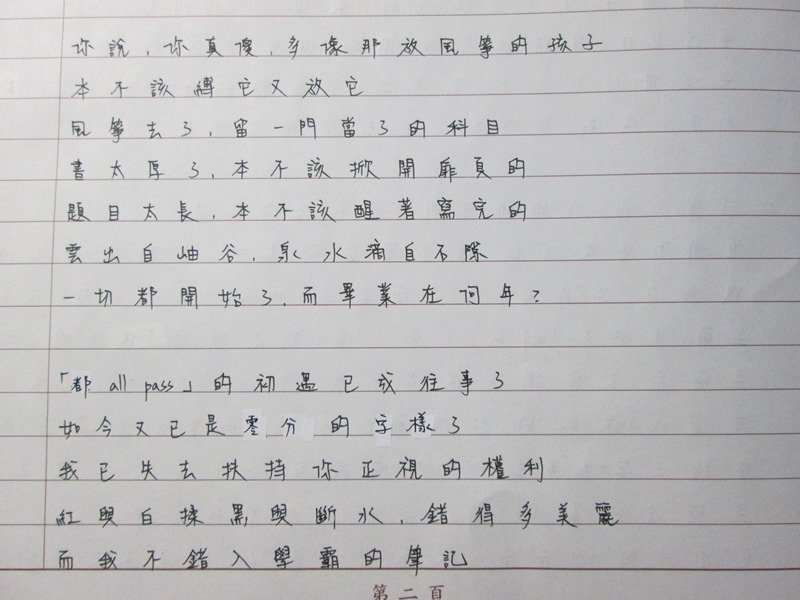 你說，你真傻，多像那放風箏的孩子
本不該縛它又放它
風箏去了，留一門當了的科目
書太厚了，本不該掀開扉頁的
題目太長，本不該醒著寫完的
雲出自岫谷，泉水滴自石隙
一切都開始了，而畢業在何年？
「都 all pass」的初遇已成往事了
如今又已是零分的字樣了
我已失去扶持你正視的權利
紅與白揉黑與斷水，錯得多美麗
而我不錯入學霸的筆記
第二頁